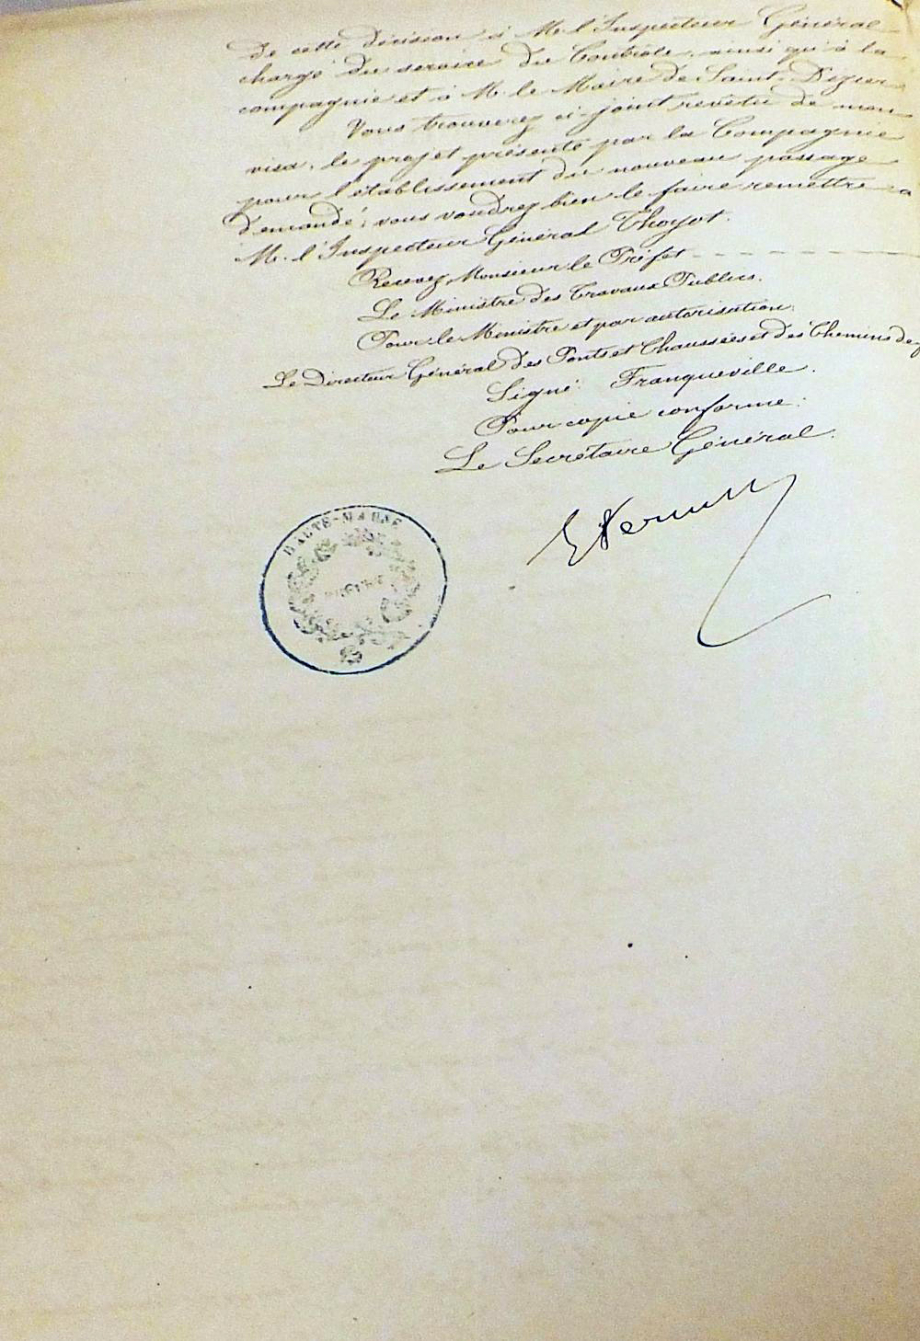 De cette décision à M. l'Inspecteur Général
chargé du service du Contrôle, ainsi qu'à la
compagnie et à M. le Maire de Saint-Dizier
Vous trouverez ci-joint revêtu de mon
visa, le projet présenté par la Compagnie
pour l'établissement du nouveau passage
demandé; vous voudrez bien le faire remettre a
M. l'Inspecteur Général Thoyot.
Recevez Monsieur le Préfet
Le Ministre des Travaux Publics.
Pour le Ministre et par autorisation.
Le Directeur Général des Ponts et Chaussées et des Chemins de
Signé: Franqueville.
Pour copie conforme:
Le Secrétaire Général.
HAUTE-MARNE